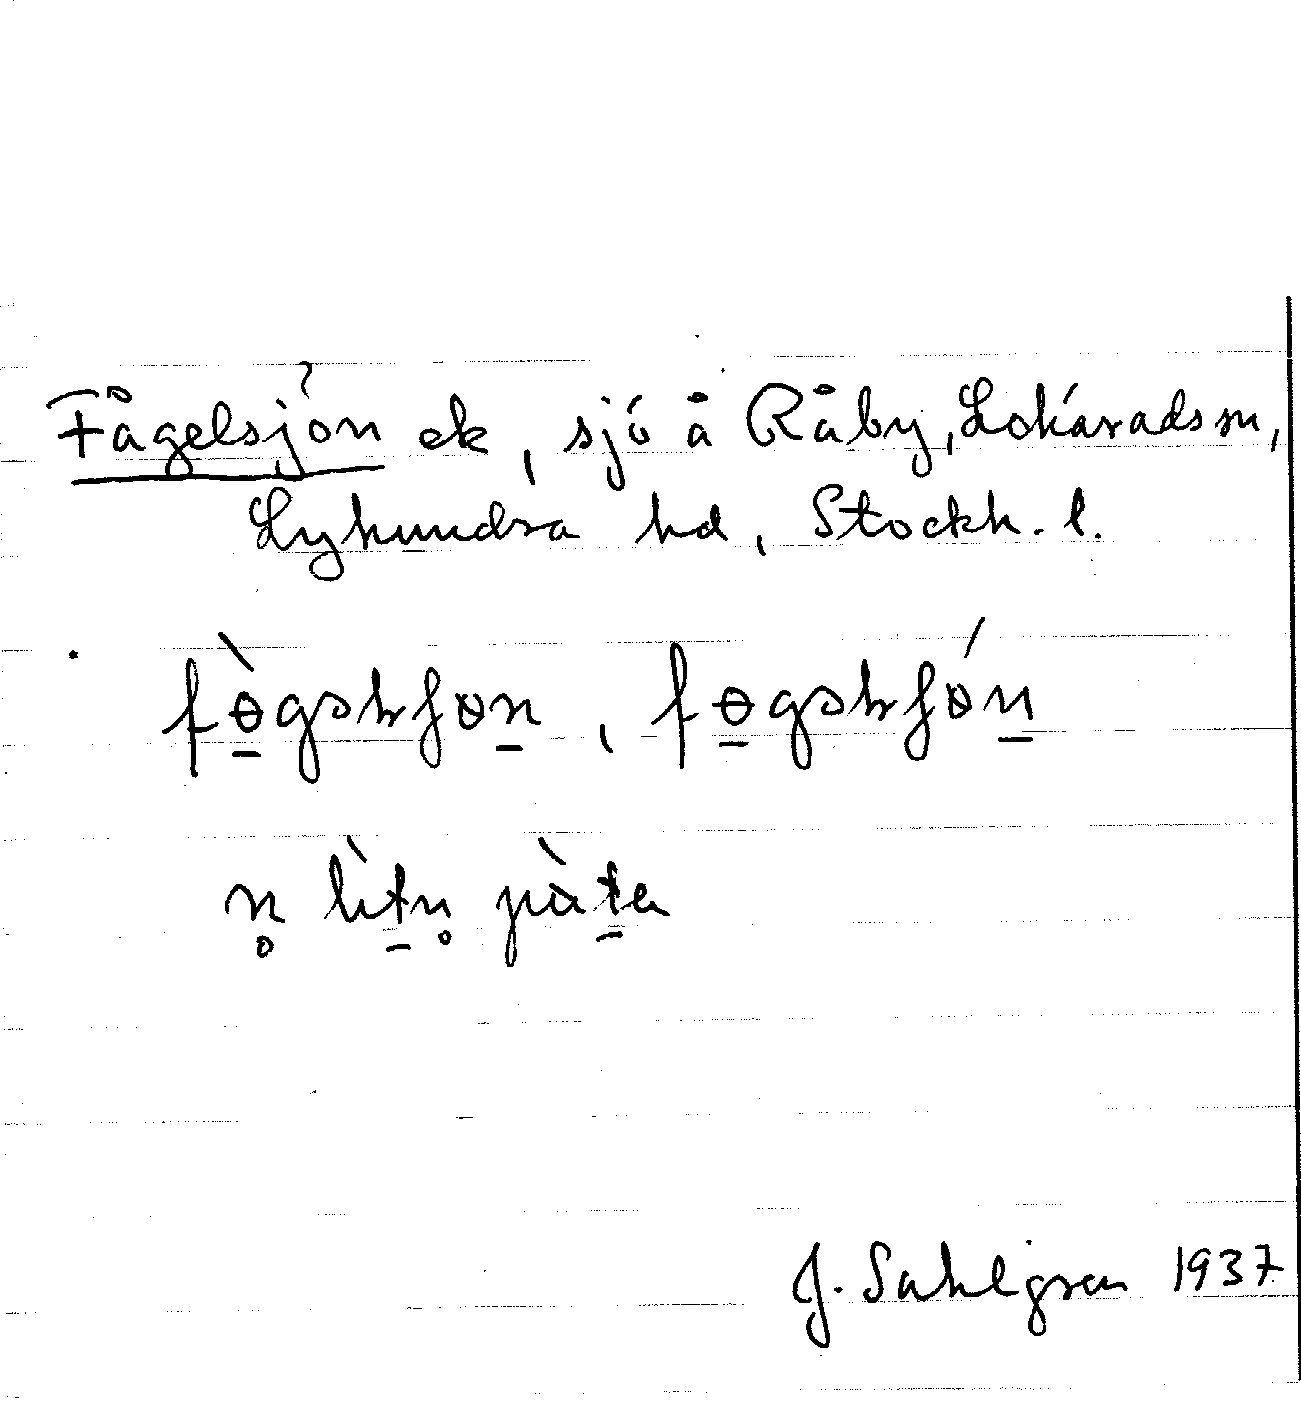 Fågelsjön ek, sjö å Råby, Lohärads sn,
Lyhundra hd, Stockh. l.
n̥ lìt̲n̥ pàt̲a
J. Sahlgren 1937